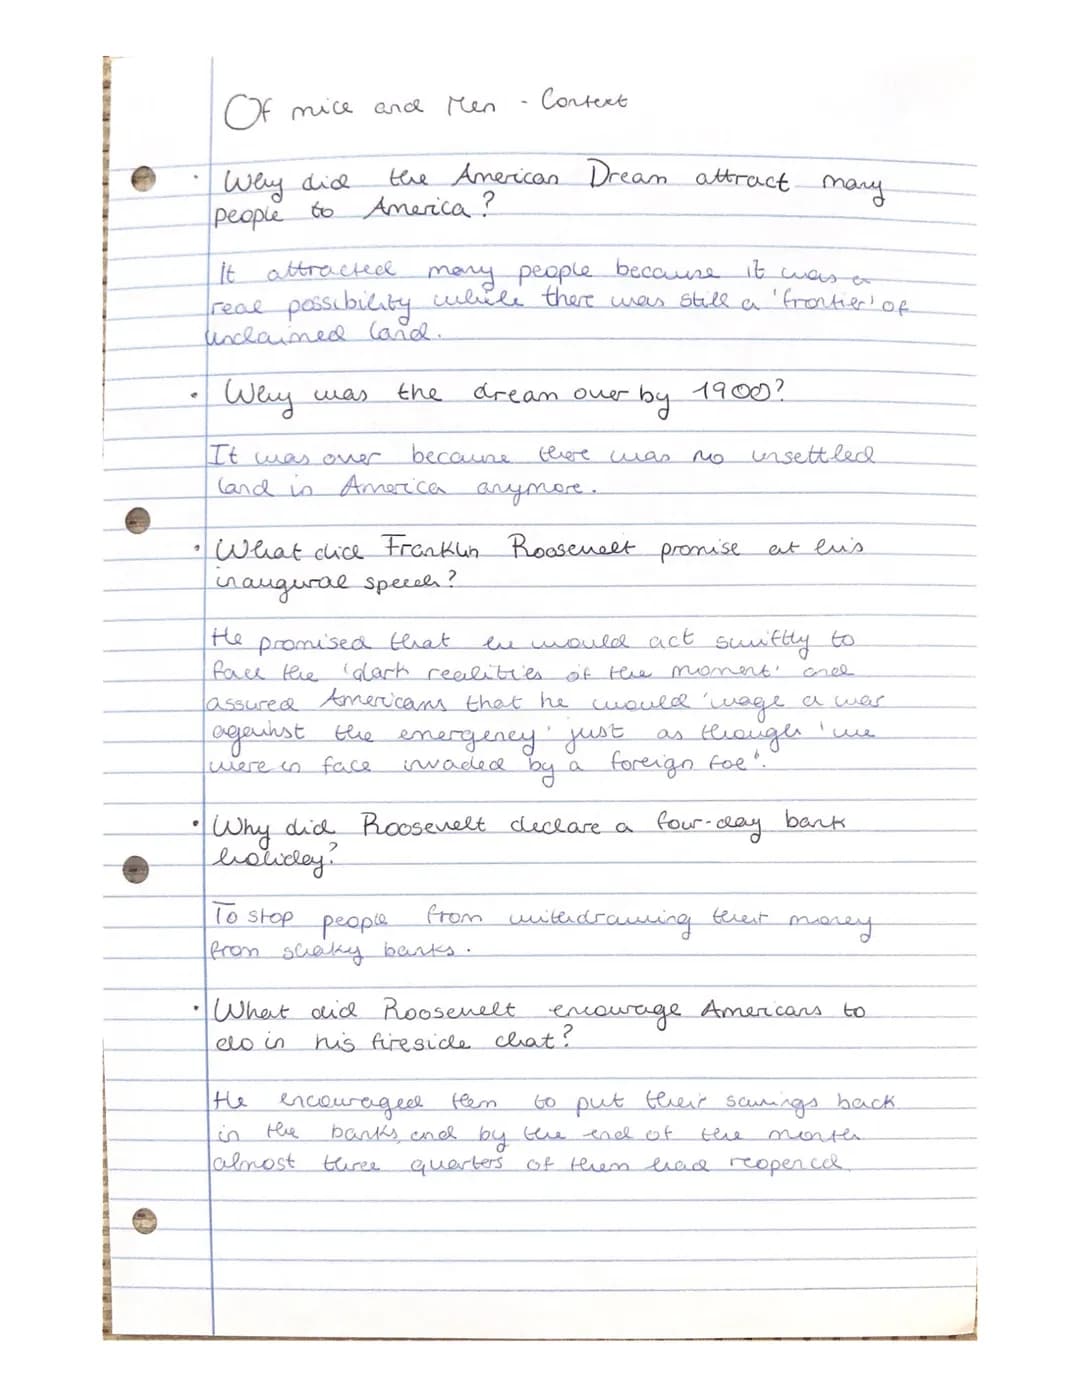 Of mice and Men - Context
• Why did the American Dream attract many
people to America?
It attracted many people because it was a
real possibility while there was still a 'frontier' of
unclaimed land.
• Why was the dream over by 1900?
It was over because there was no unsettled
land in America anymore.
• What did Franklin Roosevelt promise at his
inaugural speech?
He promised that he would act swiftly to
face the 'dark realities of the moment' and
assured Americans that he would 'wage a war
against the emergency' just as though 'we
were in face invaded by a foreign foe'.
• Why did Roosevelt declare a four-day bank
holiday?
To stop people from withdrawing their money
from shaky banks.
• What did Roosevelt encourage Americans to
do in his fireside chat?
He encouraged them to put their savings back
in the banks, and by the end of the month
almost three quarters of them had reopened.